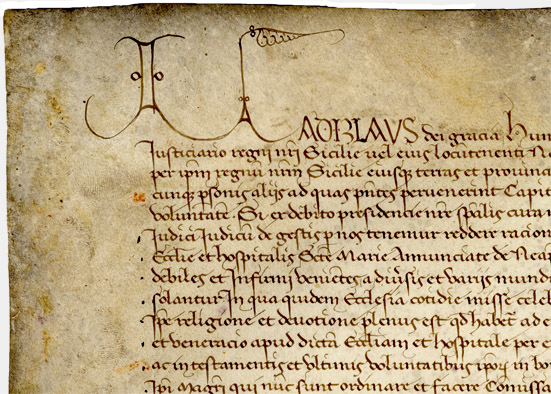 LADIZLAVS dei gracia Hun
Justiciario regni nri Sicilie vel eius locumtenenti
per ipm regnu nrm Sicilie eiusq terras et provinc
cunq psonis alijs ad quas pntes pervenerint Capit
voluntate. Si ex debito presidencie nre spalis cura
Judici Judicu de gestis p nos tenemur reddere racion
Ecclie et hospitalis Scte Marie Annunciate de Neap
debiles et Infirmi venietes a divsis et varijs mundi
solantur In qua quidem Ecclesia cotidie misse celeb
Ipe religione et devotione plenus est qd habet ad e
et veneracio apud dicta Eccliam et hospitale per e
ac in testamentis et vltimis voluntatibus ipor in bo
Ipi Magri qui nuc sunt ordinare et facere Comissa